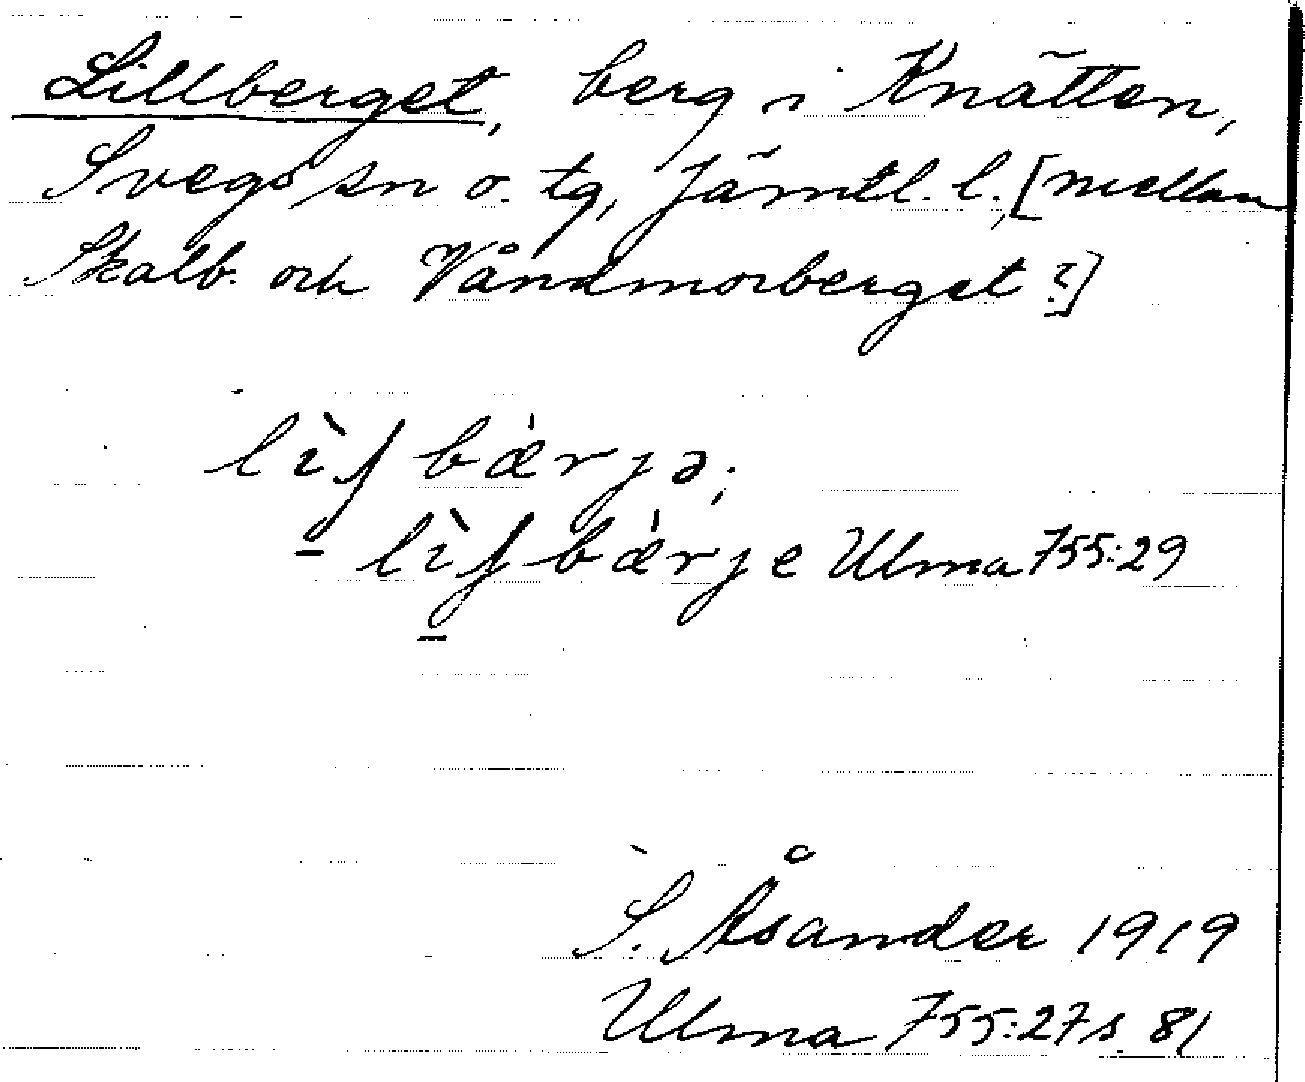 Lillberget, berg i Knätten,
Svegs sn o. tg, Jämtl. l., [mellan
Skalb. och Våndmorberget?]
lìʃ bǽrjə;
lìʃ bǽrje Ulma 755:29
S. Åsander 1919
Ulma 755:27 s. 81